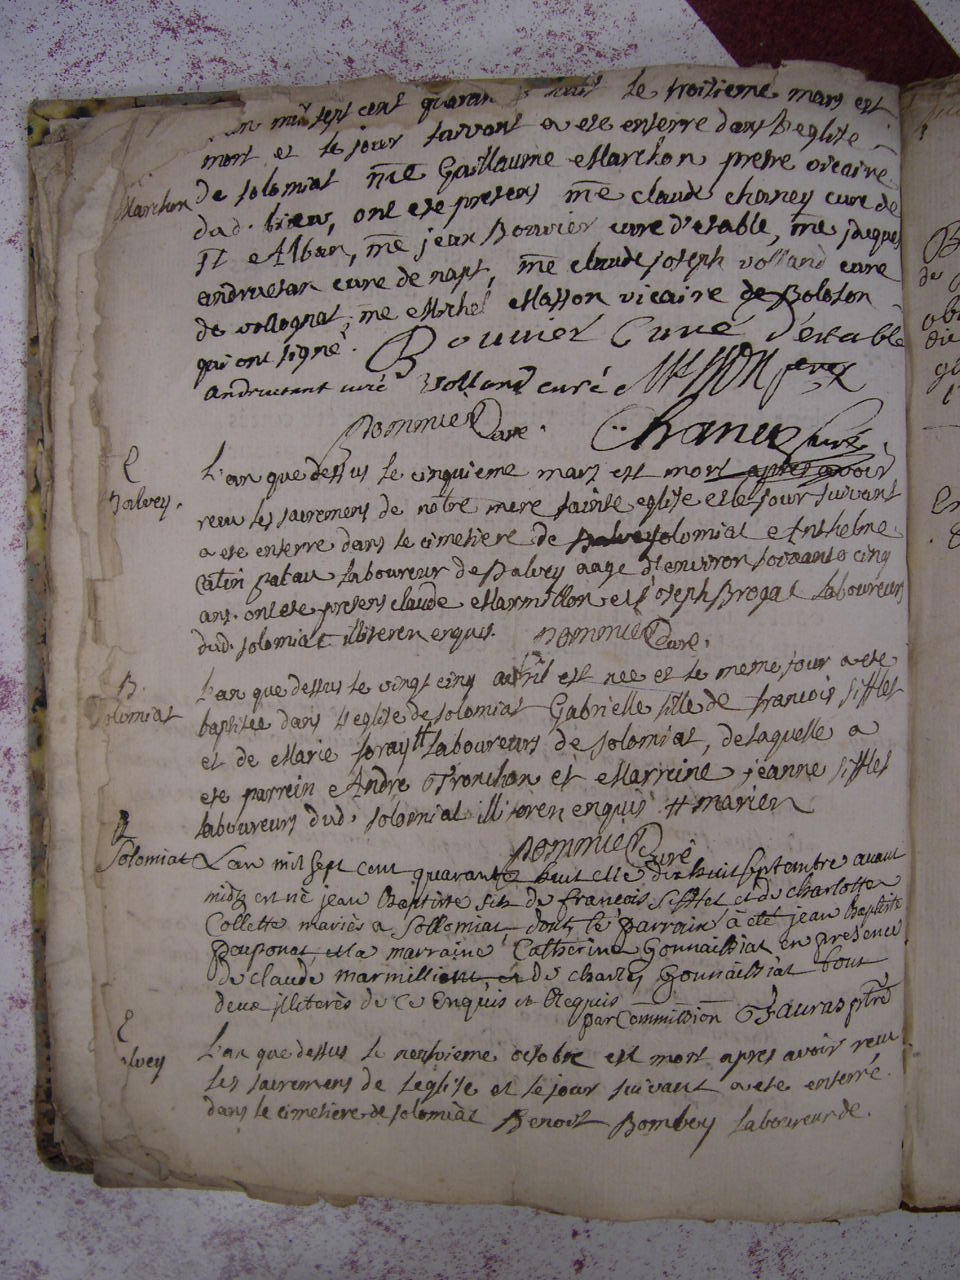 mil sept cent quaran huit le troisieme mars est
mort et le jour suivant a ete enterre dans l'eglise
Marchon de solomiat me Guillaume Marchon pretre vicaire
dud. lieu, ont ete presens me claude chaney cure de
st Alban, me jean Bouvier cure d'etable, me jacques
andruetan cure de napt, me claude joseph volland cure
de vollognat, me Michel Masson vicaire de Boloson
qui ont signé. Bouvier Curé d'estable
andruetant curé Volland curé Masson
pommier Cure. Chaney curé
E
Balvey.
L'an que dessus le cinquieme mars est mort apres avoir
receu les sacremens de notre mere sainte eglise et le jour suivant
a ete enterre dans le cimetiere de Balvey solomiat Anthelme
laboureur de Balvey aage d'environ soixante cinq
ans. ont ete presens claude Marmillon et joseph Brogat laboureurs
dud. solomiat illiteren enquis. pommier Cure.
B.
Solomiat
L'an que dessus le vingt cinq avril est nee et le meme jour a ete
baptisée dans l'eglise de solomiat Gabrielle fille de francois sifflet
et de Marie foray # laboureurs de solomiat, de laquelle a
ete parrein Andre Tronchon et Marreine jeanne sifflet
laboureurs dud. solomiat illiteren enquis # mariez
pommier Curé
B
Solomiat L'an mil sept cent quarante huit et le dix huit septembre avant
midy est né jean Baptiste fils de francois Sifflet et de charlotte
Collette mariés a Sollomiat dont le parrain à eté jean Baptiste
Pouponat et la marraine Catherine Gonnaissiat en presence
de claude marmillion et de charles Gonnaissiat tout
deux illiterés de ce Enquis et Requis
par Commission Fauras ptre
E
alvey
L'an que dessus le neufvieme octobre est mort apres avoir receu
les sacremens de l'eglise et le jour suivant a ete enterré
dans le cimetiere de solomiat Benoit Bombey laboureur de.